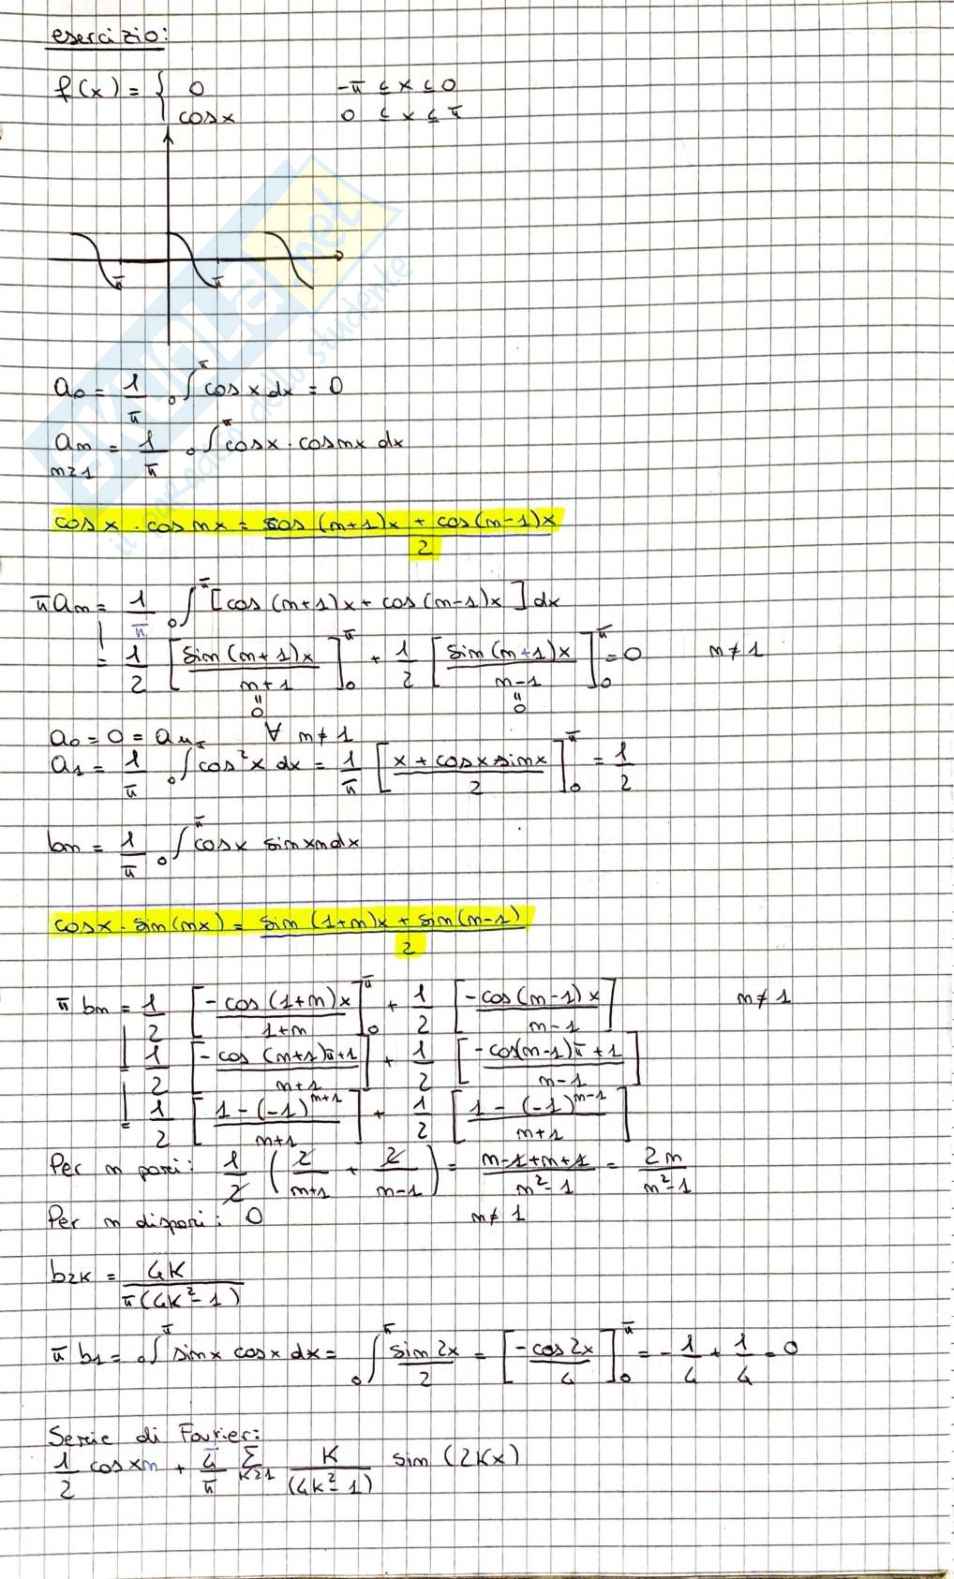 esercizio:
f(x) = { 0      -π ≤ x ≤ 0
cosx      0 ≤ x ≤ π
π π
a₀ = 1/π ₀∫^π cosx dx = 0
aₙ = 1/π ₀∫^π cosx · cosnx dx
n≥1
cosx · cosnx = cos(n+1)x + cos(n-1)x / 2
πaₙ = 1/π ₀∫^π [cos(n+1)x + cos(n-1)x] dx
= 1/2 [sin(n+1)x / n+1]₀^π + 1/2 [sin(n+1)x / n-1]₀^π = 0      n≠1
" 0      " 0
a₀ = 0 = aₙ      ∀ n≠1
a₁ = 1/π ₀∫^π cos²x dx = 1/π [x + cosx sinx / 2]₀^π = 1/2
bn = 1/π ₀∫^π cosx sinxndx
cosx · sin(nx) = sin(1+n)x + sin(n-1) / 2
π bn = 1/2 [-cos(1+n)x / 1+n]₀^π + 1/2 [-cos(n-1)x / n-1]      n≠1
1/2 [-cos(n+1)π+1 / n+1] + 1/2 [-cos(n-1)π+1 / n-1]
= 1/2 [1-(-1)^(n+1) / n+1] + 1/2 [1-(-1)^(n-1) / n+1]
Per n pari: 1/2 (2/n+1 + 2/n-1) = n-1+n+1 / n²-1 = 2n / n²-1
Per n dispari: 0      n≠1
b2k = 4k / π(4k²-1)
π b₁ = ₀∫^π sinx cosx dx = ₀∫^π sin2x / 2 = [-cos2x / 4]₀^π = -1/4 + 1/4 = 0
Serie di Fourier:
1/2 cosxn + 4/π Σ k≥1 k / (4k²-1) sin(2kx)
SKUOLA.net
il paradiso dello studente